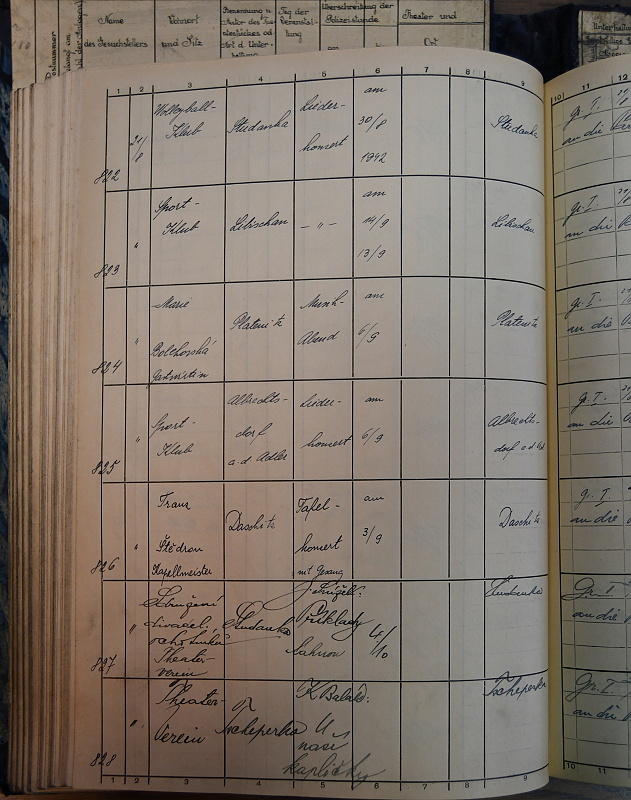 Name
des Gesuchstellers
Wohnort
und Sitz
Benennung u.
Tag der
Veranstal-
tung
Überschreibung der
Polizeistunde
Theater und
Ort
1 2 3 4 5 6 7 8 9 10 11 12
822
21/8
Volleyball-
Klub
Studanka
Lieder-
konzert
am
30/8
1942
Studanka
gr. I.
an die
823
"
Sport-
Klub
Libischan
— " —
am
14/9
13/9
Libischan
gr. I
an die
824
"
Marie
Bolehovská
Gastwirtin
Platenitz
Musik-
Abend
am
6/9
Platenitz
gr. I.
an die
825
"
Sport-
Klub
Albrechts-
dorf
a.d. Adler
Lieder-
konzert
am
6/9
Albrechts-
dorf a d Ad
gr. I.
an die
826
"
Franz
Štědron
Kapellmeister
Daschitz
Tafel-
konzert
mit Gesang
am
3/9
Daschitz
g. I.
an die
827
"
Sdružení
divadel.
ochotníků
Theater-
verein
Studanka
Příklady
táhnou
4/10
Studanka
Gr. I
an die
828
"
Theater-
Verein
Tscheperka
K. Balák:
U
naší
kapličky
Tscheperka
Gr. I.
an die
1 2 3 4 5 6 7 8 9 10 11